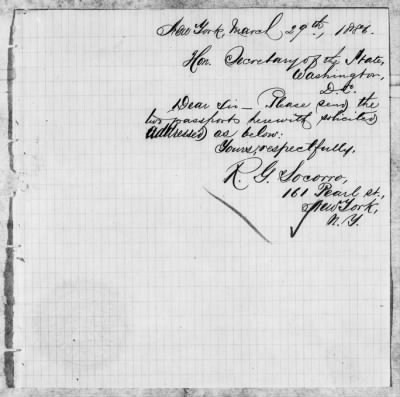 New York, March 29th, 1886.
Hon. Secretary of the State,
Washington,
D.C.
Dear Sir — Please send the
two passport herewith solicited
addressed as below:
Yours, respectfully,
R. G. Socorro,
161 Pearl st.,
New York,
N. Y.